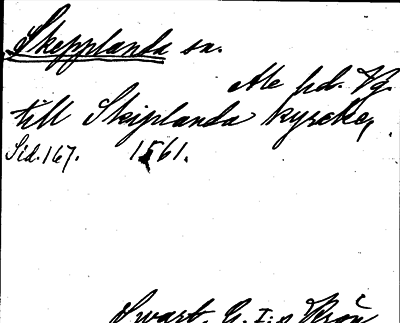 Skepplanda sn.
Ale hd. Vg.
till Skiplanda kyrcke,
Sid. 167. 1561.
Swart, G. I:s Krön